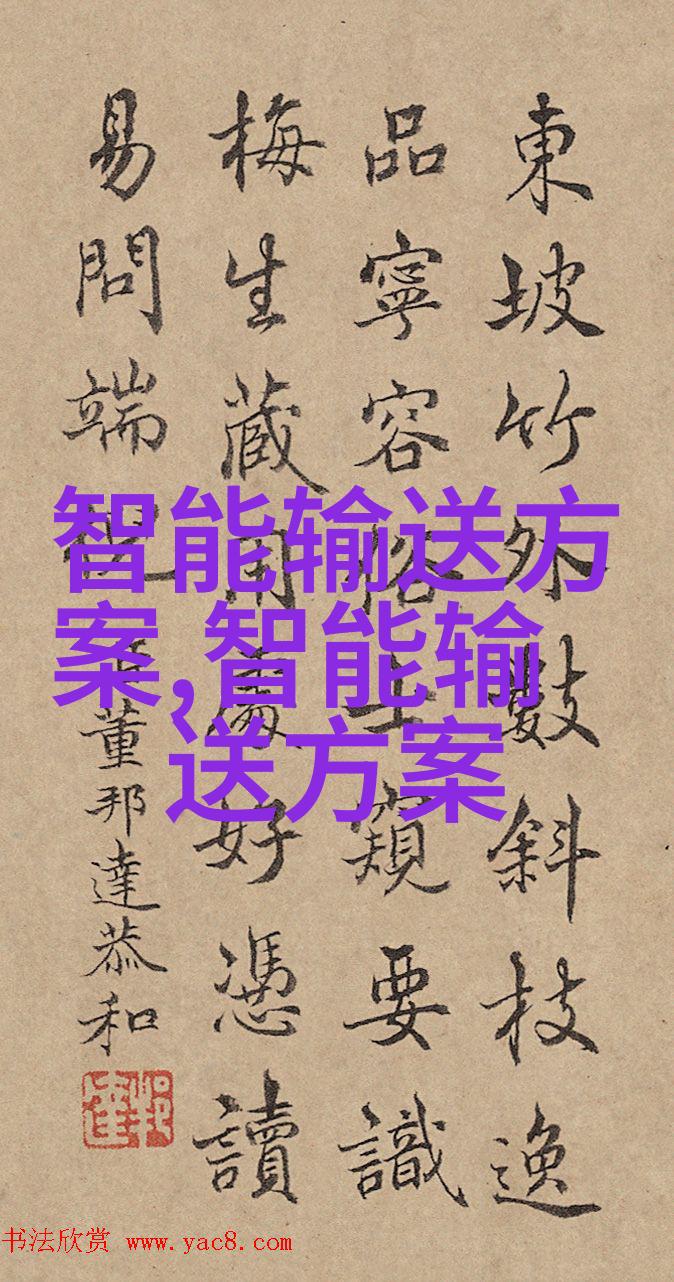 東坡竹外數斜枝逸
品寧容俗士窺要識
梅生藏用處好憑讀
易問端倪
臣董邦達恭和
智能输送方
案,智能输
送方案
书法欣赏 www.yac8.com